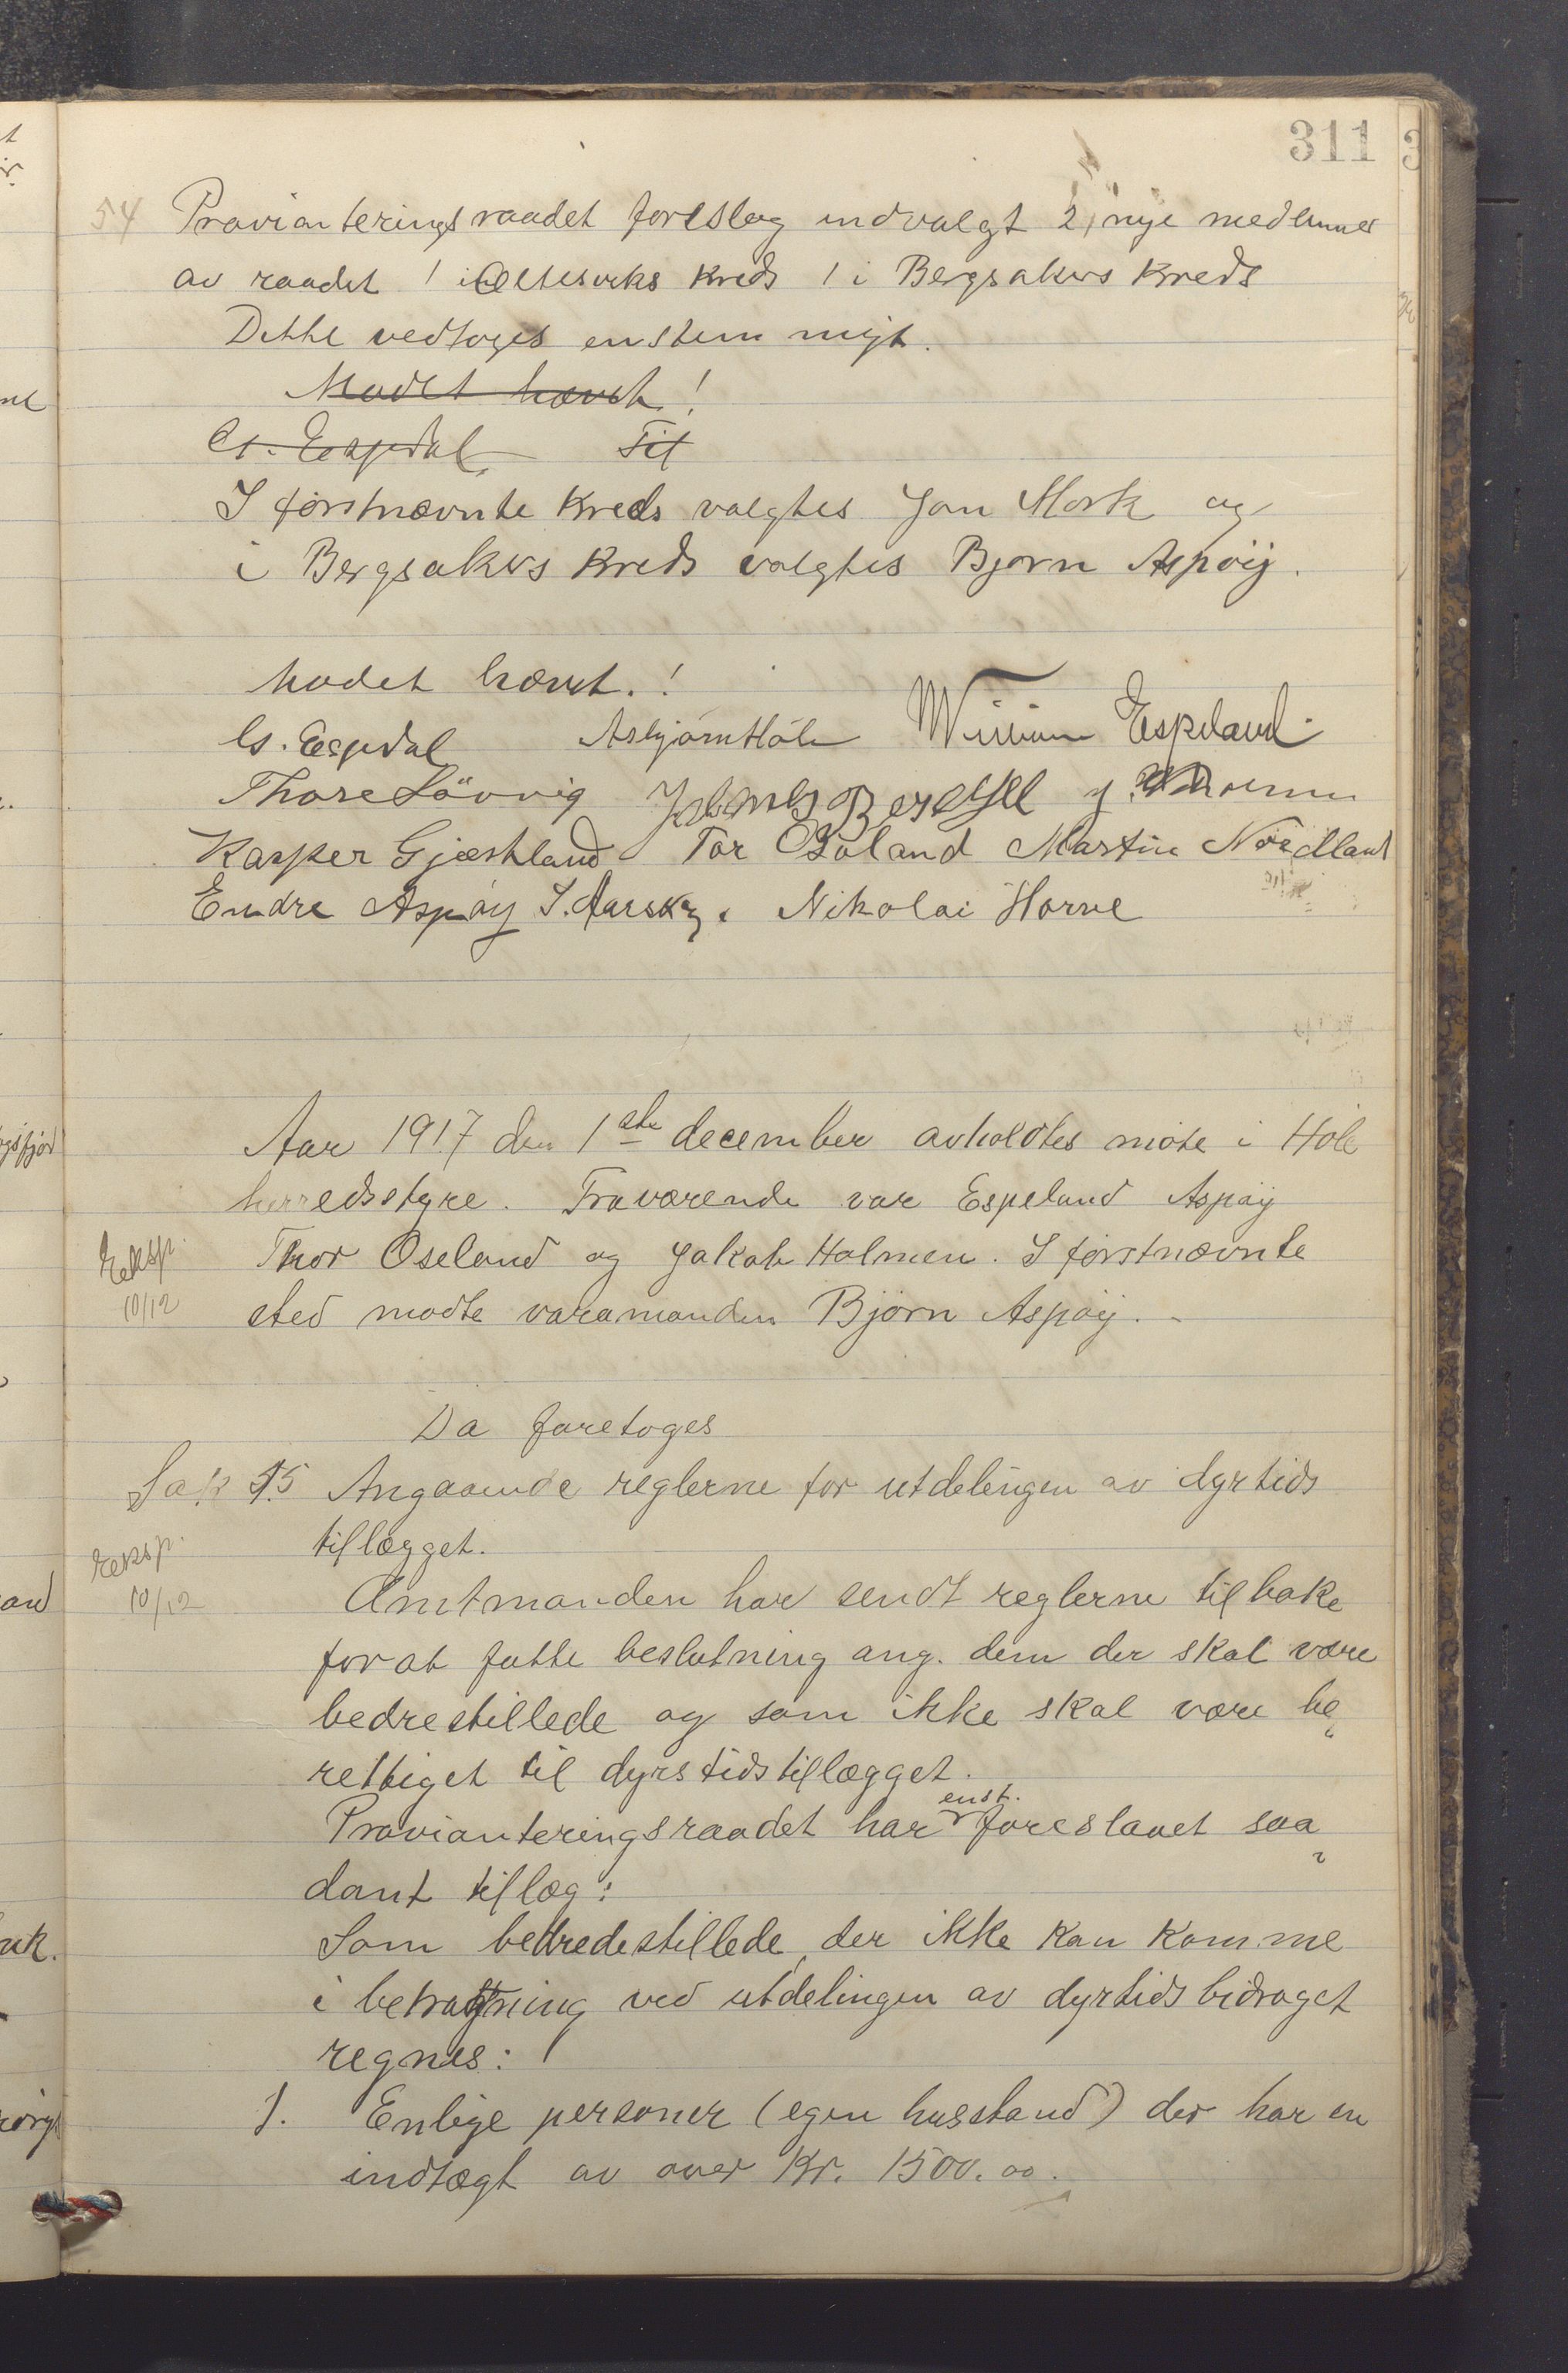 311
54 Provianteringsraadet foreslog indvalgt 2, nye medlemmer
av raadet 1 i Oltesviks kreds 1 i Bergsakers kreds
Dette vedtoges enstemmigt.
Mødet hævet!
Cs. Espedal Til
I førstnævnte kreds valgtes Jon Mork og
i Bergsakers kreds valgtes Bjørn Aspøy.
Mødet hævet.!
Cs. Espedal Asbjørn Höle William Espeland
Thore Lövvig Berekvell J. Holmen
Kasper Gjæstland Tor Öseland Martin Nordland
Endre Aspøy S. Aarskog. Nikolai Horve
Aar 1917 den 1ste december avholdtes møte i Höle
herredsstyre. Fraværende var Espeland Aspøy
Eksp. Thor Oseland og Jakob Holmen. I førstnævnte
10/12 sted mødte varamanden Bjørn Aspøy.
Da foretoges
Sak 55 Angaaende reglerne for utdelingen av dyrtids
tillægget.
Eksp. 10/12
Amtmanden har sendt reglerne tilbake
for at fatte beslutning ang. dem der skal være
bedrestillede og som ikke skal være be„
rettiget til dyrstidstillægget.
Provianteringsraadet har enst. foreslaaet saa„
dant tillæg:
Som bedredestillede, der ikke kan komme
i betragtning ved utdelingen av dyrtidsbidraget
regnes:
1. Enlige personer (egen husstand) der har en
indtægt av over Kr. 1500.00.